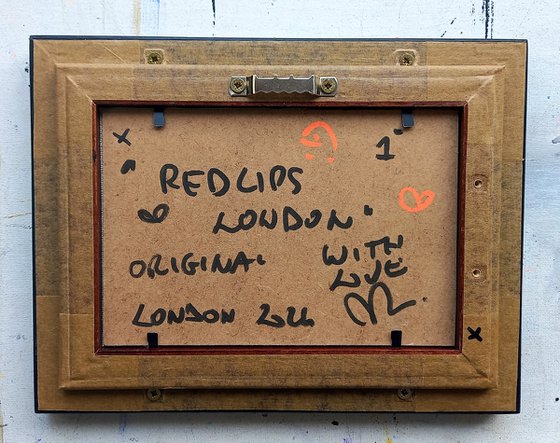 x 1"
" REDLIPS
LONDON"
ORIGINAL WITH
LOVE
LONDON
x